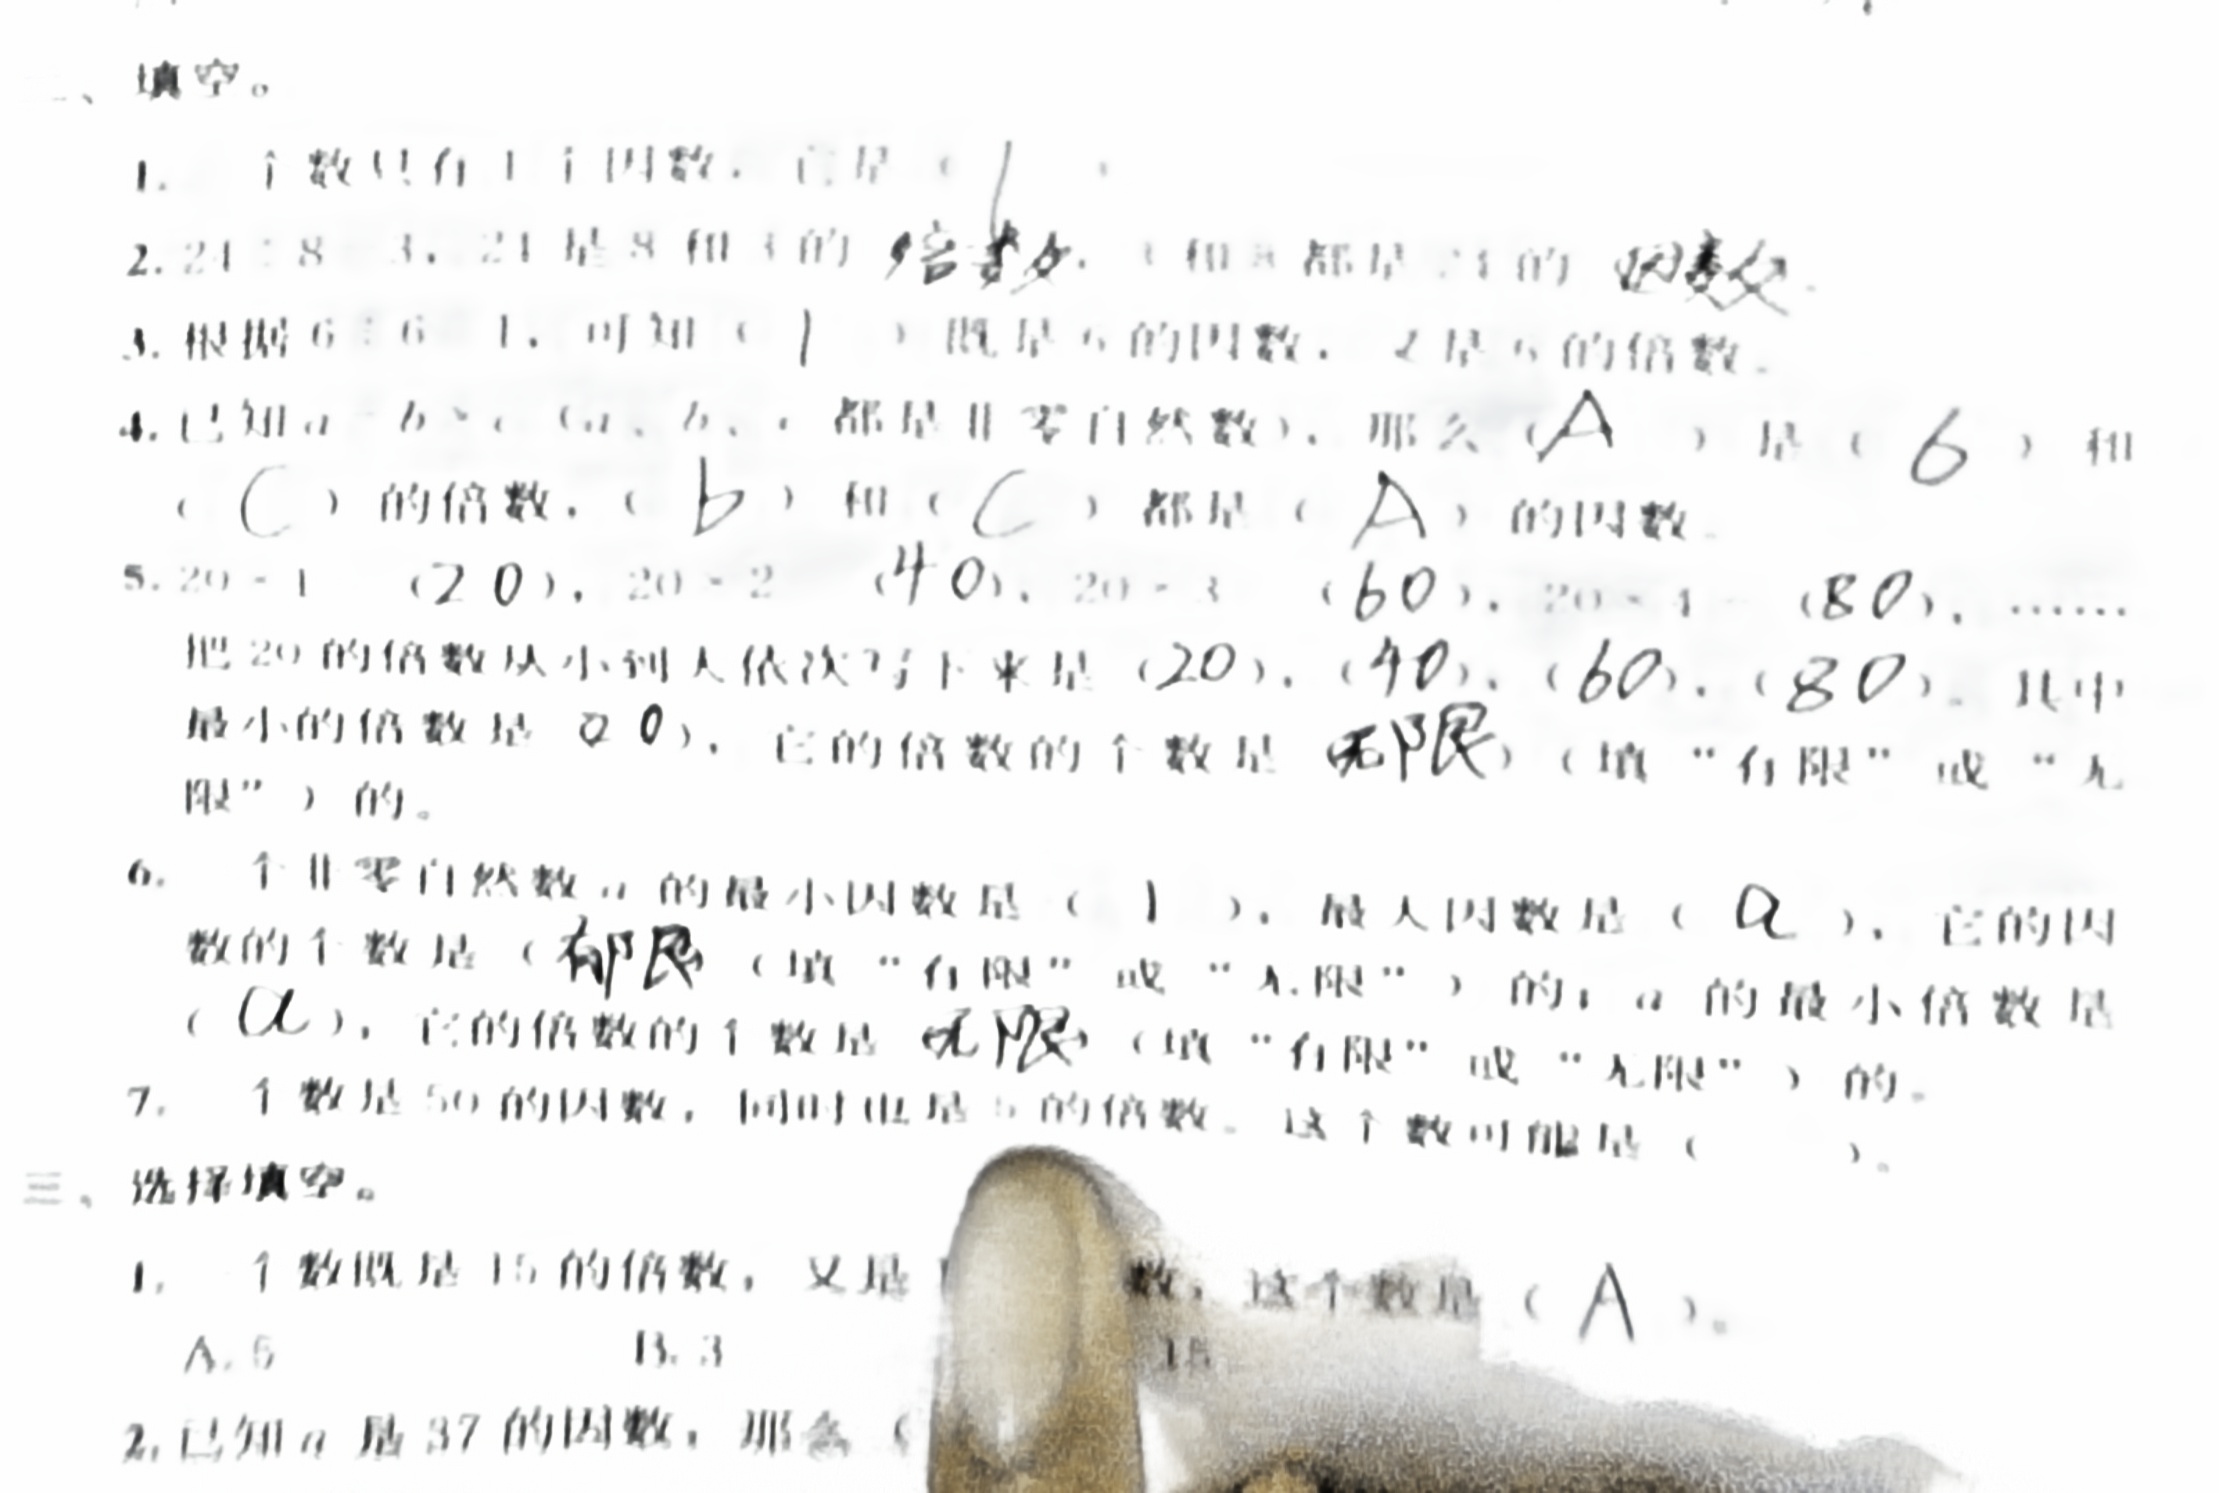 二、填空。
1. 一个数只有1个因数，它是（ 1 ）
2. 24÷8=3，24是8和3的 倍数，3和8都是24的 因数.
3. 根据6÷6=1，可知（ 1 ）既是6的因数，又是6的倍数。
4. 已知a=b×c（a、b、c都是非零自然数），那么（A）是（ 6 ）和
（ C ）的倍数，（ b ）和（ C ）都是（ A ）的因数。
5. 20×1=（20），20×2=（40），20×3=（60），20×4=（80），……
把20的倍数从小到大依次写下来是（20），（40），（60），（80）。其中
最小的倍数是 20），它的倍数的个数是 无限）（填“有限”或“无
限”）的。
6. 一个非零自然数a的最小因数是（ 1 ），最大因数是（ a ），它的因
数的个数是（有限（填“有限”或“无限”）的；a的最小倍数是
（a），它的倍数的个数是 无限（填“有限”或“无限”）的。
7. 一个数是50的因数，同时也是5的倍数。这个数可能是（ ）。
三、选择填空。
1. 一个数既是15的倍数，又是 数，这个数是（ A ）。
A. 5 B. 3 15
2. 已知a是37的因数，那么（